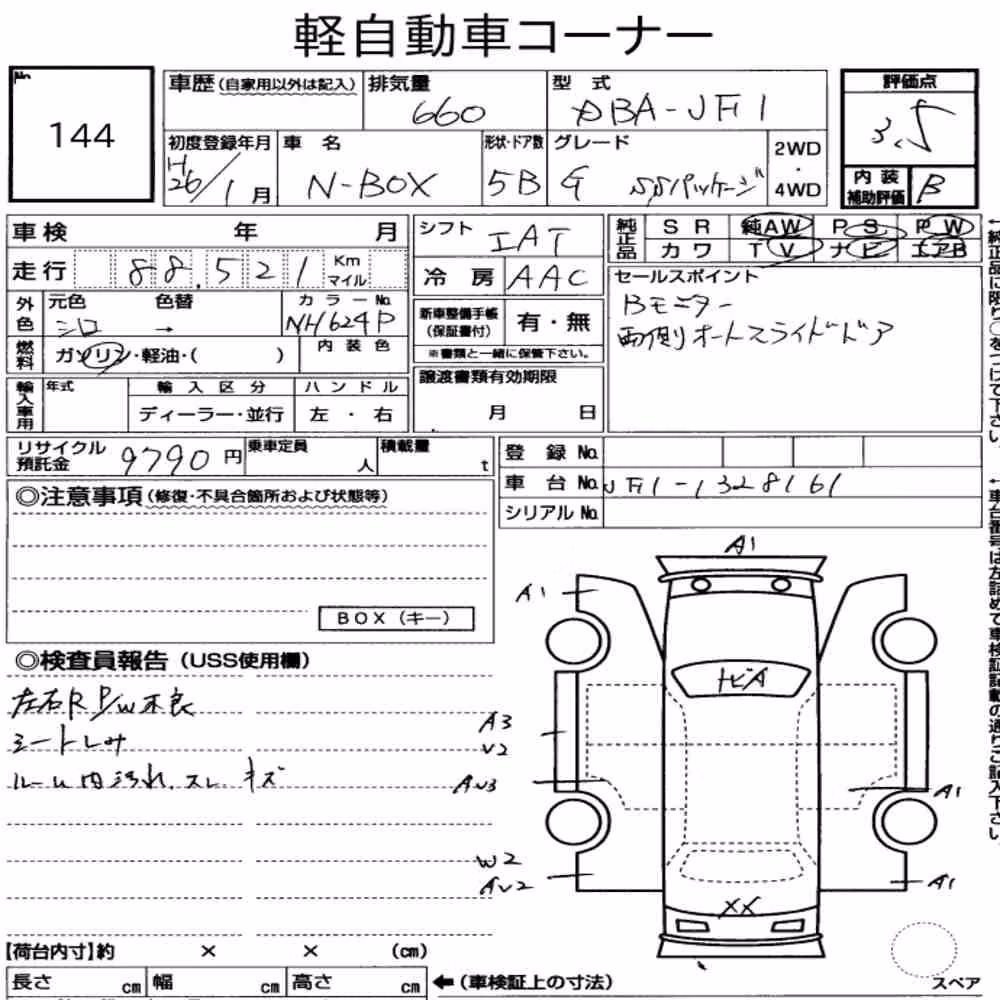 軽自動車コーナー
No.
144
車歴(自家用以外は記入)
排気量
660
型式
DBA-JF1
評価点
3.5
初度登録年月
H26/1月
車名
N-BOX
形状・ドア数
5B
グレード
G SSパッケージ
2WD
・
4WD
内装
補助評価
B
車検 年 月
走行 88,521 Km
マイル
シフト
IAT
冷房 AAC
純正品
SR 純AW PS PW
カワ TV ナビ エアB
外色
元色 色替
シロ →
カラーNo.
NH624P
燃料
ガソリン・軽油・( )
内装色
新車整備手帳
(保証書付)
有・無
※書類と一緒に保管下さい。
セールスポイント
Bモニター
両側オートスライドドア
輸入車用
年式
輸入区分
ディーラー・並行
ハンドル
左・右
譲渡書類有効期限
月 日
リサイクル
預託金
9790円
乗車定員
人
積載量
t
登録No.
車台No. JF1-1328161
シリアルNo.
◎注意事項(修復・不具合箇所および状態等)
BOX(キー)
◎検査員報告(USS使用欄)
左右R P/W不良
シートしみ
ルーム内汚れ、スレ キズ
A1
A1
トビA
A3
V2
AV3
A1
W2
AV2
A1
XX
【荷台内寸】約 × × (cm)
長さ cm 幅 cm 高さ cm
←(車検証上の寸法)
スペア
←純正品に限り○をつけて下さい。
←車台番号は左詰めで車検証記載の通りご記入下さい。